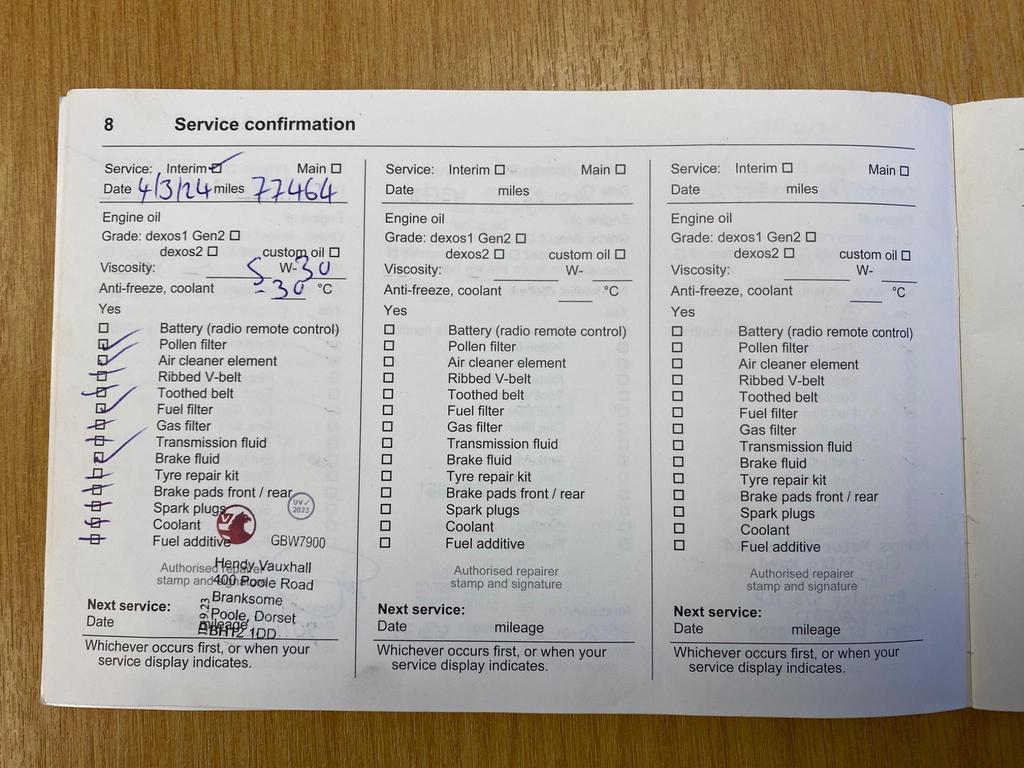 8 Service confirmation
Service: Interim ☑ Main ☐
Date 4/3/24 miles 77464
Engine oil
Grade: dexos1 Gen2 ☐
dexos2 ☐ custom oil ☐
Viscosity: 5 W-30
Anti-freeze, coolant -30 °C
Yes
Battery (radio remote control)
Pollen filter
Air cleaner element
Ribbed V-belt
Toothed belt
Fuel filter
Gas filter
Transmission fluid
Brake fluid
Tyre repair kit
Brake pads front / rear
Spark plugs
UV✓
2023
Coolant
Fuel additive GBW7900
Authorised repairer
stamp and signature
Hendy Vauxhall
400 Poole Road
Branksome
Poole, Dorset
BH12 1DD
Next service:
Date mileage
Whichever occurs first, or when your
service display indicates.
Service: Interim ☐ Main ☐
Date miles
Engine oil
Grade: dexos1 Gen2 ☐
dexos2 ☐ custom oil ☐
Viscosity: W-
Anti-freeze, coolant °C
Yes
☐ Battery (radio remote control)
☐ Pollen filter
☐ Air cleaner element
☐ Ribbed V-belt
☐ Toothed belt
☐ Fuel filter
☐ Gas filter
☐ Transmission fluid
☐ Brake fluid
☐ Tyre repair kit
☐ Brake pads front / rear
☐ Spark plugs
☐ Coolant
☐ Fuel additive
Authorised repairer
stamp and signature
Next service:
Date mileage
Whichever occurs first, or when your
service display indicates.
Service: Interim ☐ Main ☐
Date miles
Engine oil
Grade: dexos1 Gen2 ☐
dexos2 ☐ custom oil ☐
Viscosity: W-
Anti-freeze, coolant °C
Yes
☐ Battery (radio remote control)
☐ Pollen filter
☐ Air cleaner element
☐ Ribbed V-belt
☐ Toothed belt
☐ Fuel filter
☐ Gas filter
☐ Transmission fluid
☐ Brake fluid
☐ Tyre repair kit
☐ Brake pads front / rear
☐ Spark plugs
☐ Coolant
☐ Fuel additive
Authorised repairer
stamp and signature
Next service:
Date mileage
Whichever occurs first, or when your
service display indicates.